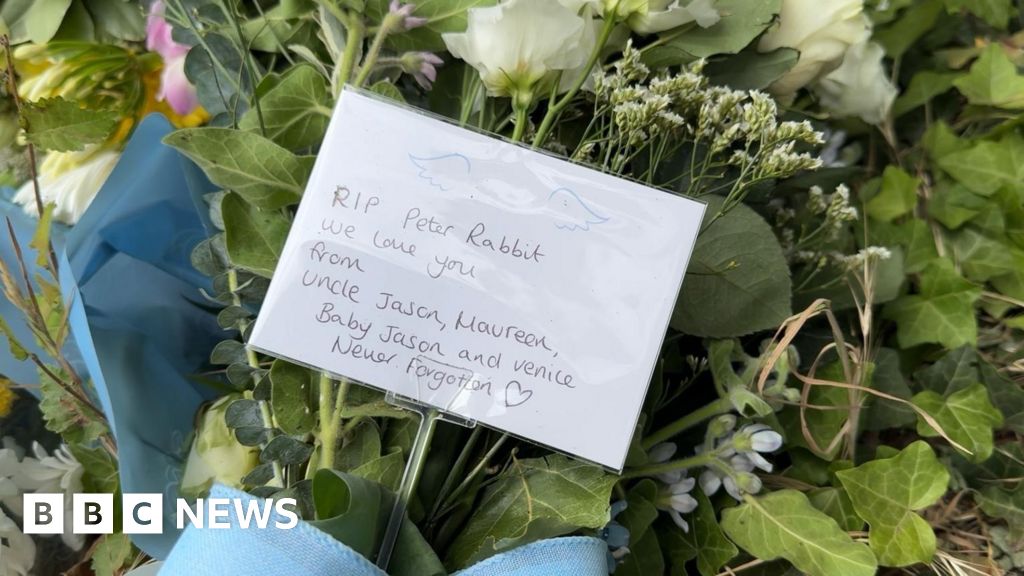 RIP Peter Rabbit
we love you
from
Uncle Jason, Maureen,
Baby Jason and venice
Never Forgotten ♡
BBC NEWS